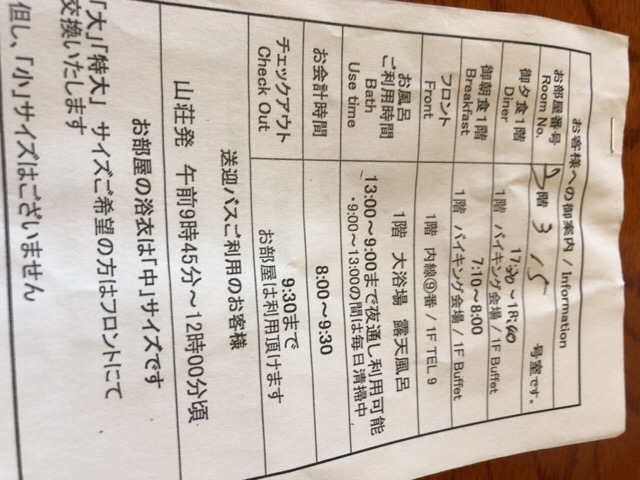 お客様への御案内 / Information
お部屋番号
Room No.
3階 315 号室です。
御夕食1階
Diner
17:30～18:00
1階 バイキング会場 / 1F Buffet
御朝食1階
Breakfast
7:10～8:00
1階 バイキング会場 / 1F Buffet
フロント
Front
1階 内線⑨番 / 1F TEL 9
お風呂
ご利用時間
Bath
Use time
1階 大浴場 露天風呂
13:00～9:00まで夜通し利用可能
・9:00～13:00の間は毎日清掃中
お会計時間
8:00～9:30
チェックアウト
Check Out
9:30まで
お部屋は利用頂けます
送迎バスご利用のお客様
山荘発 午前9時45分～12時00分頃
お部屋の浴衣は「中」サイズです
「大」「特大」 サイズご希望の方はフロントにて
交換いたします
但し、「小」サイズはございません